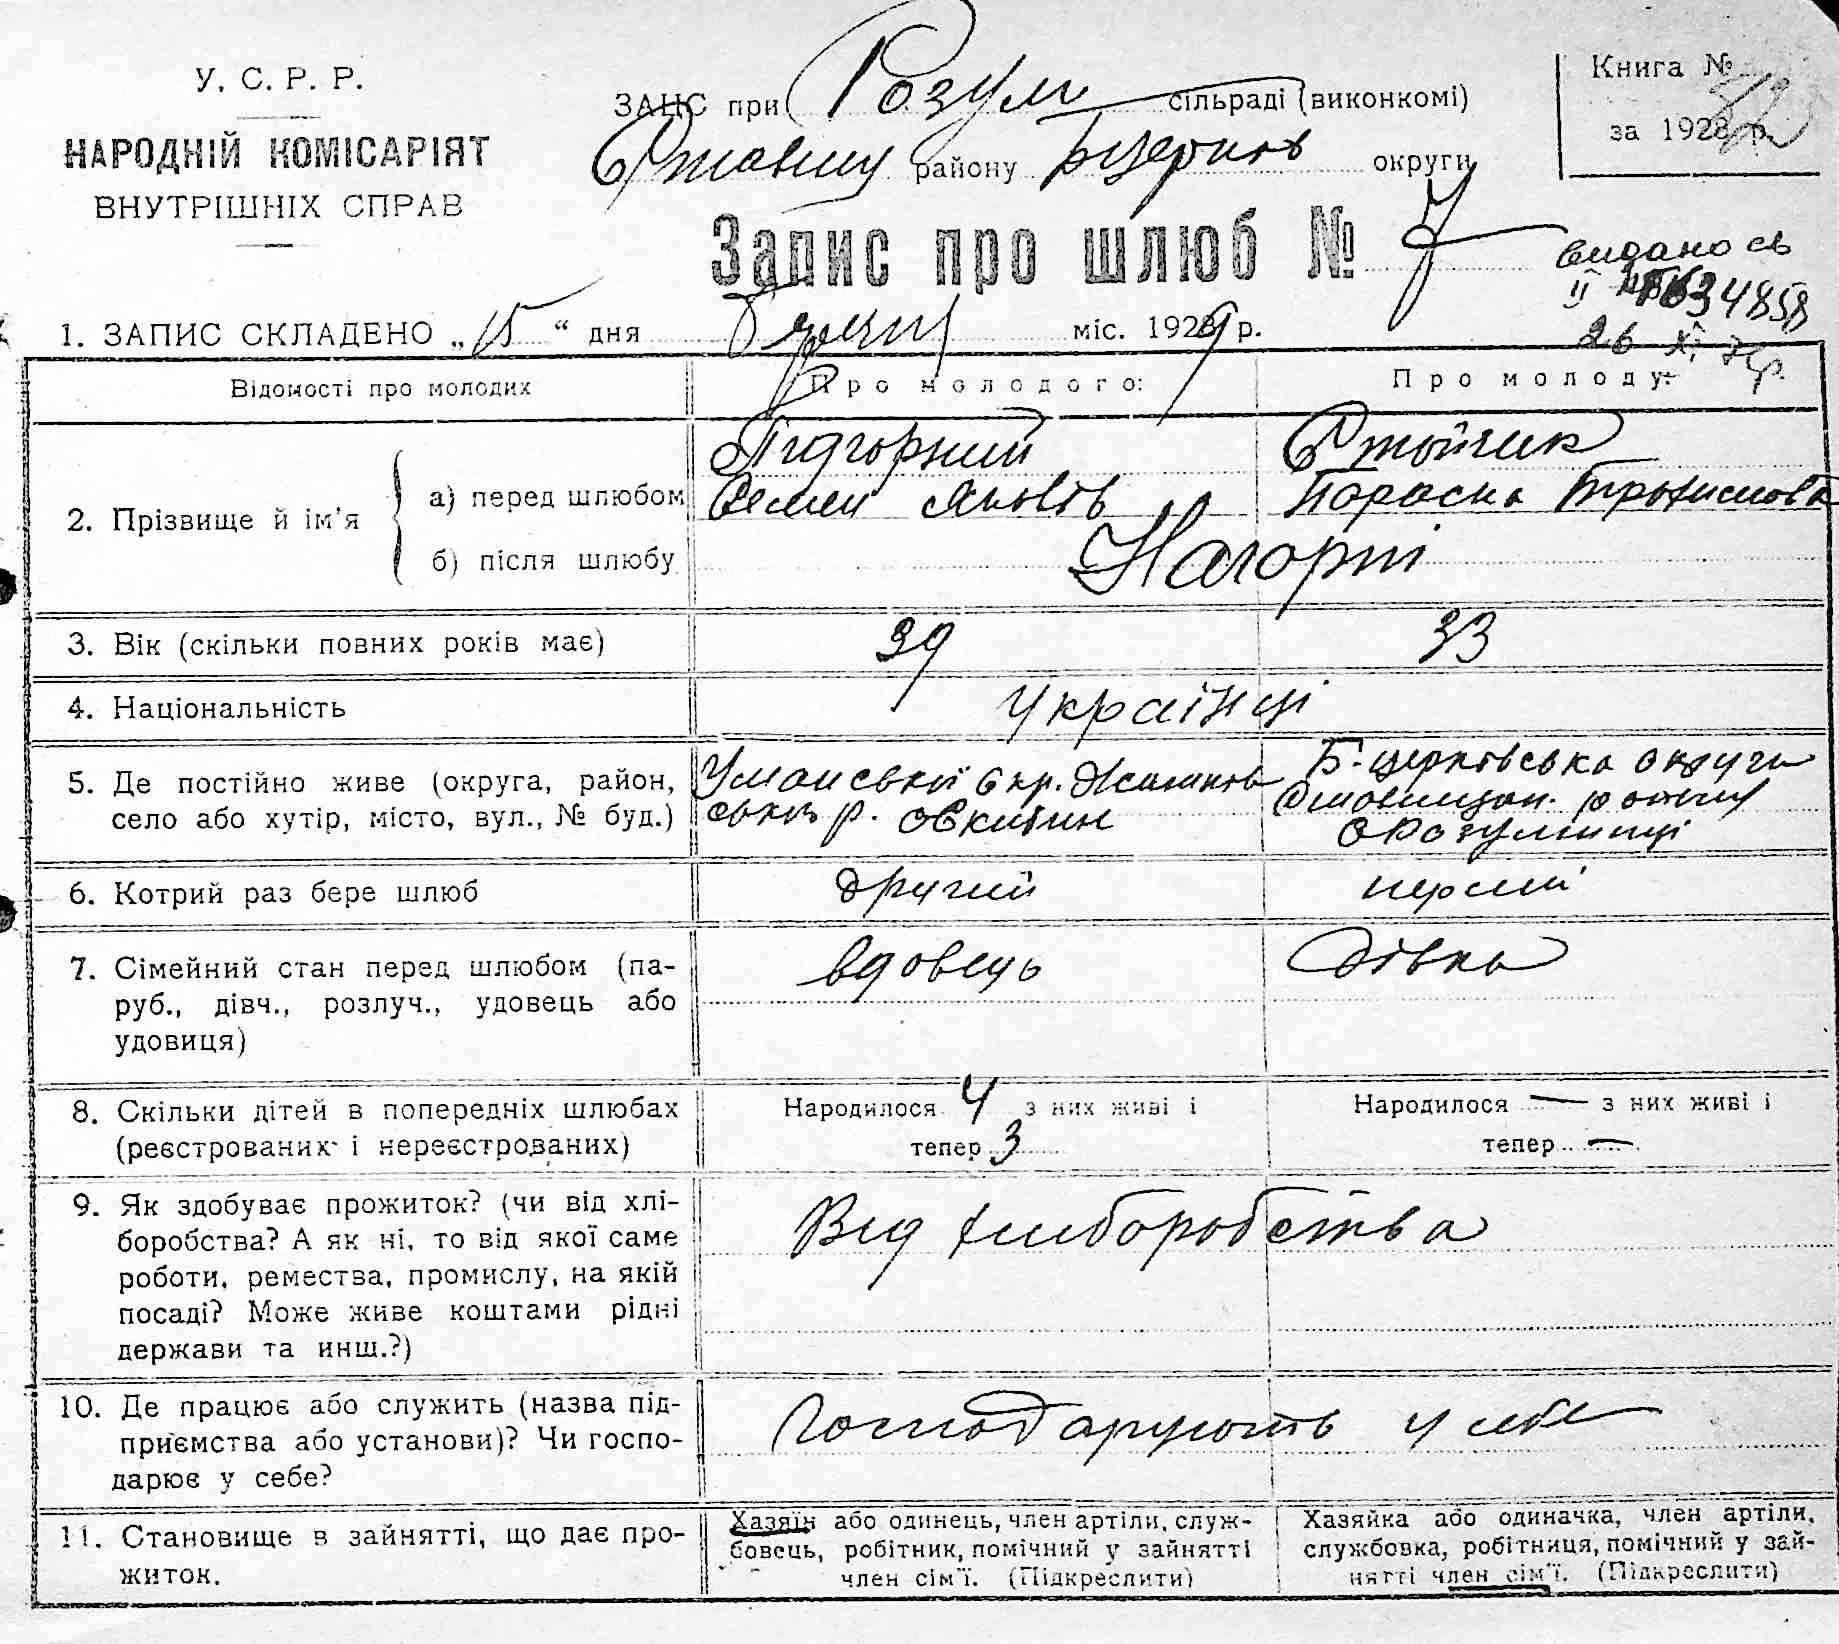 У. С. Р. Р.
НАРОДНІЙ КОМІСАРІЯТ
ВНУТРІШНІХ СПРАВ
ЗАЦС при Розум сільраді (виконкомі)
району Бцерків округи
Книга №
за 1928 р.
32
Запис про шлюб № 7
видано св
II
26 XI
1. ЗАПИС СКЛАДЕНО „ 15 “ дня міс. 1929 р.
Відомості про молодих
Про молодого:
Про молоду:
2. Прізвище й ім'я
а) перед шлюбом
б) після шлюбу
Підгорний
Семен Яковів
Параска
Нагорні
3. Вік (скільки повних років має)
39
33
4. Національність
Українці
5. Де постійно живе (округа, район, село або хутір, місто, вул., № буд.)
Уманської окр. Жашків
ськів р.
Б-церківська округа
с Розумниці
6. Котрий раз бере шлюб
другий
перший
7. Сімейний стан перед шлюбом (па-
руб., дівч., розлуч., удовець або
удовиця)
вдовець
дівка
8. Скільки дітей в попередніх шлюбах
(реєстрованих і нереєстрованих)
Народилося 4 з них живі і
тепер 3
Народилося — з них живі і
тепер —
9. Як здобуває прожиток? (чи від хлі-
боробства? А як ні, то від якої саме
роботи, ремества, промислу, на якій
посаді? Може живе коштами рідні
держави та инш.?)
Від хліборобства
10. Де працює або служить (назва під-
приємства або установи)? Чи госпо-
дарює у себе?
Господарують у себе
11. Становище в зайнятті, що дає про-
житок.
Хазяїн або одинець, член артіли, служ-
бовець, робітник, помічний у зайнятті
член сім'ї. (Підкреслити)
Хазяйка або одиначка, член артіли,
службовка, робітниця, помічний у зай-
нятті член сім'ї. (Підкреслити)